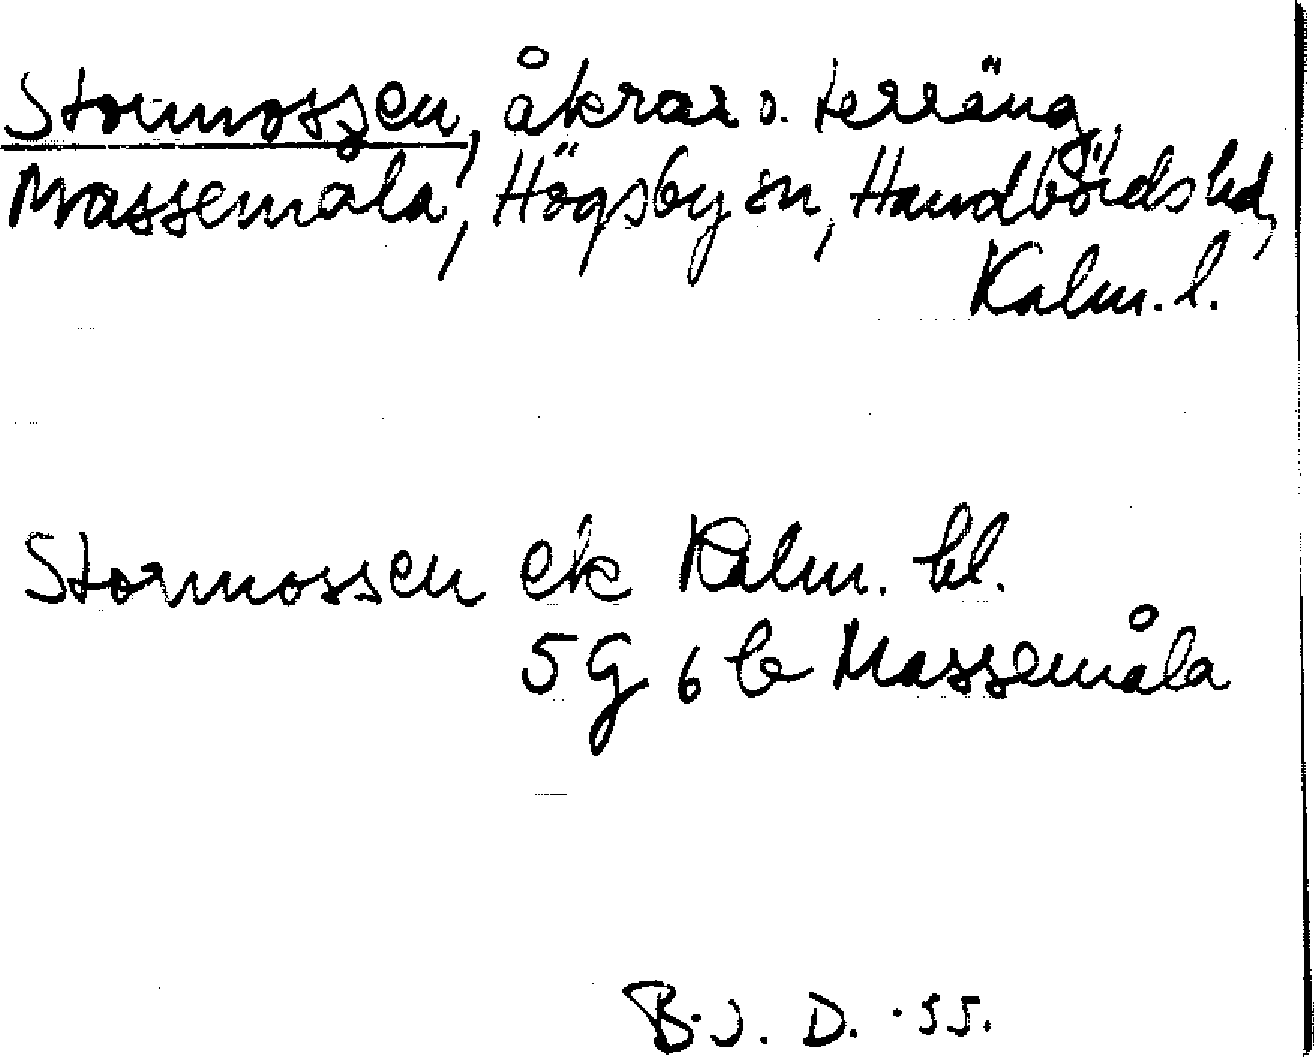 Stormossen, åkrar o. terräng,
Massemåla, Högsby sn, Handbörds hd,
Kalm. l.
Stormossen ek Kalm. bl.
5 G 6 b Massemåla
B.J. D. -55.